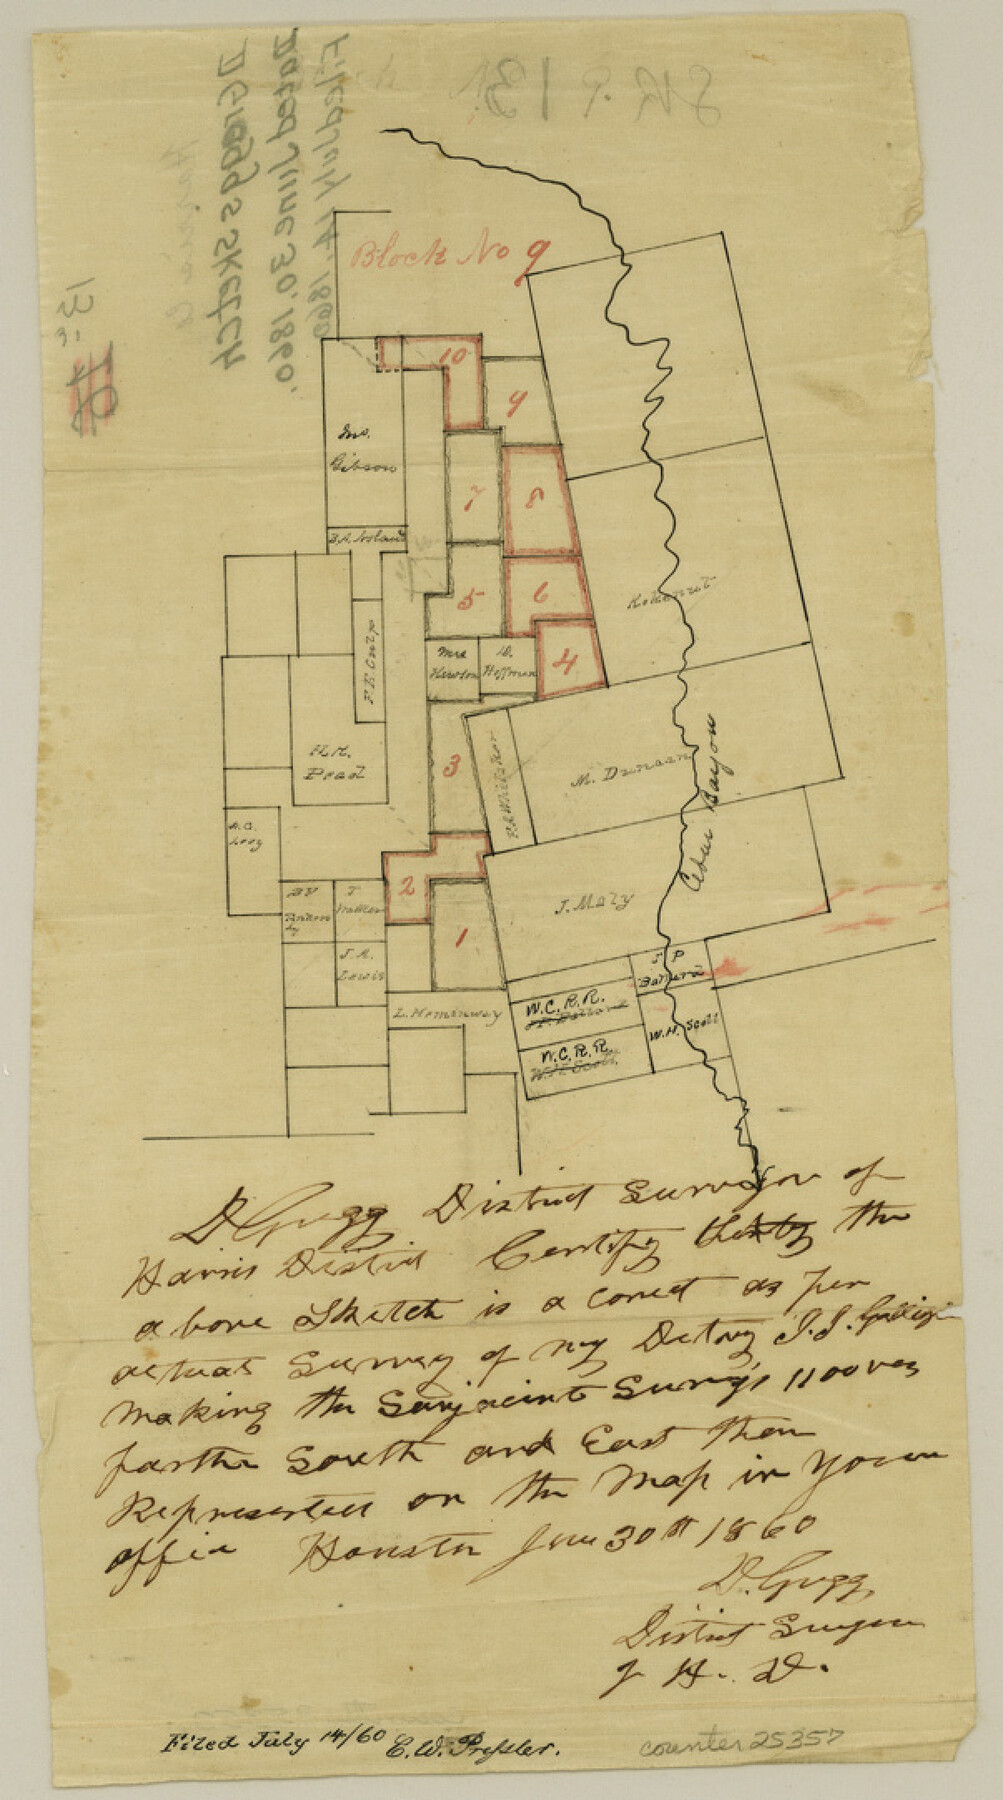 Filed July 14. 1860
Dated June 30. 1860.
D Gregg's Sketch
Harris Co
13
Block No 9
10
9
Jno.
Gibson
7
8
B.A. Noland
5
6
Kokernut
F.E. Culp
Mrs
Newton
D.
Hoffman
4
H.M.
Pead
3
M. Duncan
Cedar Bayou
A.C.
2
J. Mary
J
1
J.A.
Lewis
J P
Ballard
L. Heminway
W.C.R.R.
J.P. Ballard
W.H. Scott
W.C.R.R.
W.H. Scott
D Gregg District Surveyor of
Harris District Certify the
above Sketch is a correct as per
actual Survey of my Deputy J.J.
making the Surveys 1100 vrs
farther South and East than
Represented on the Map in Your
office Houston June 30th 1860
D. Gregg,
District Surveyor
of H. D.
Filed July 14/60 E.W. Pressler.
counter 25357